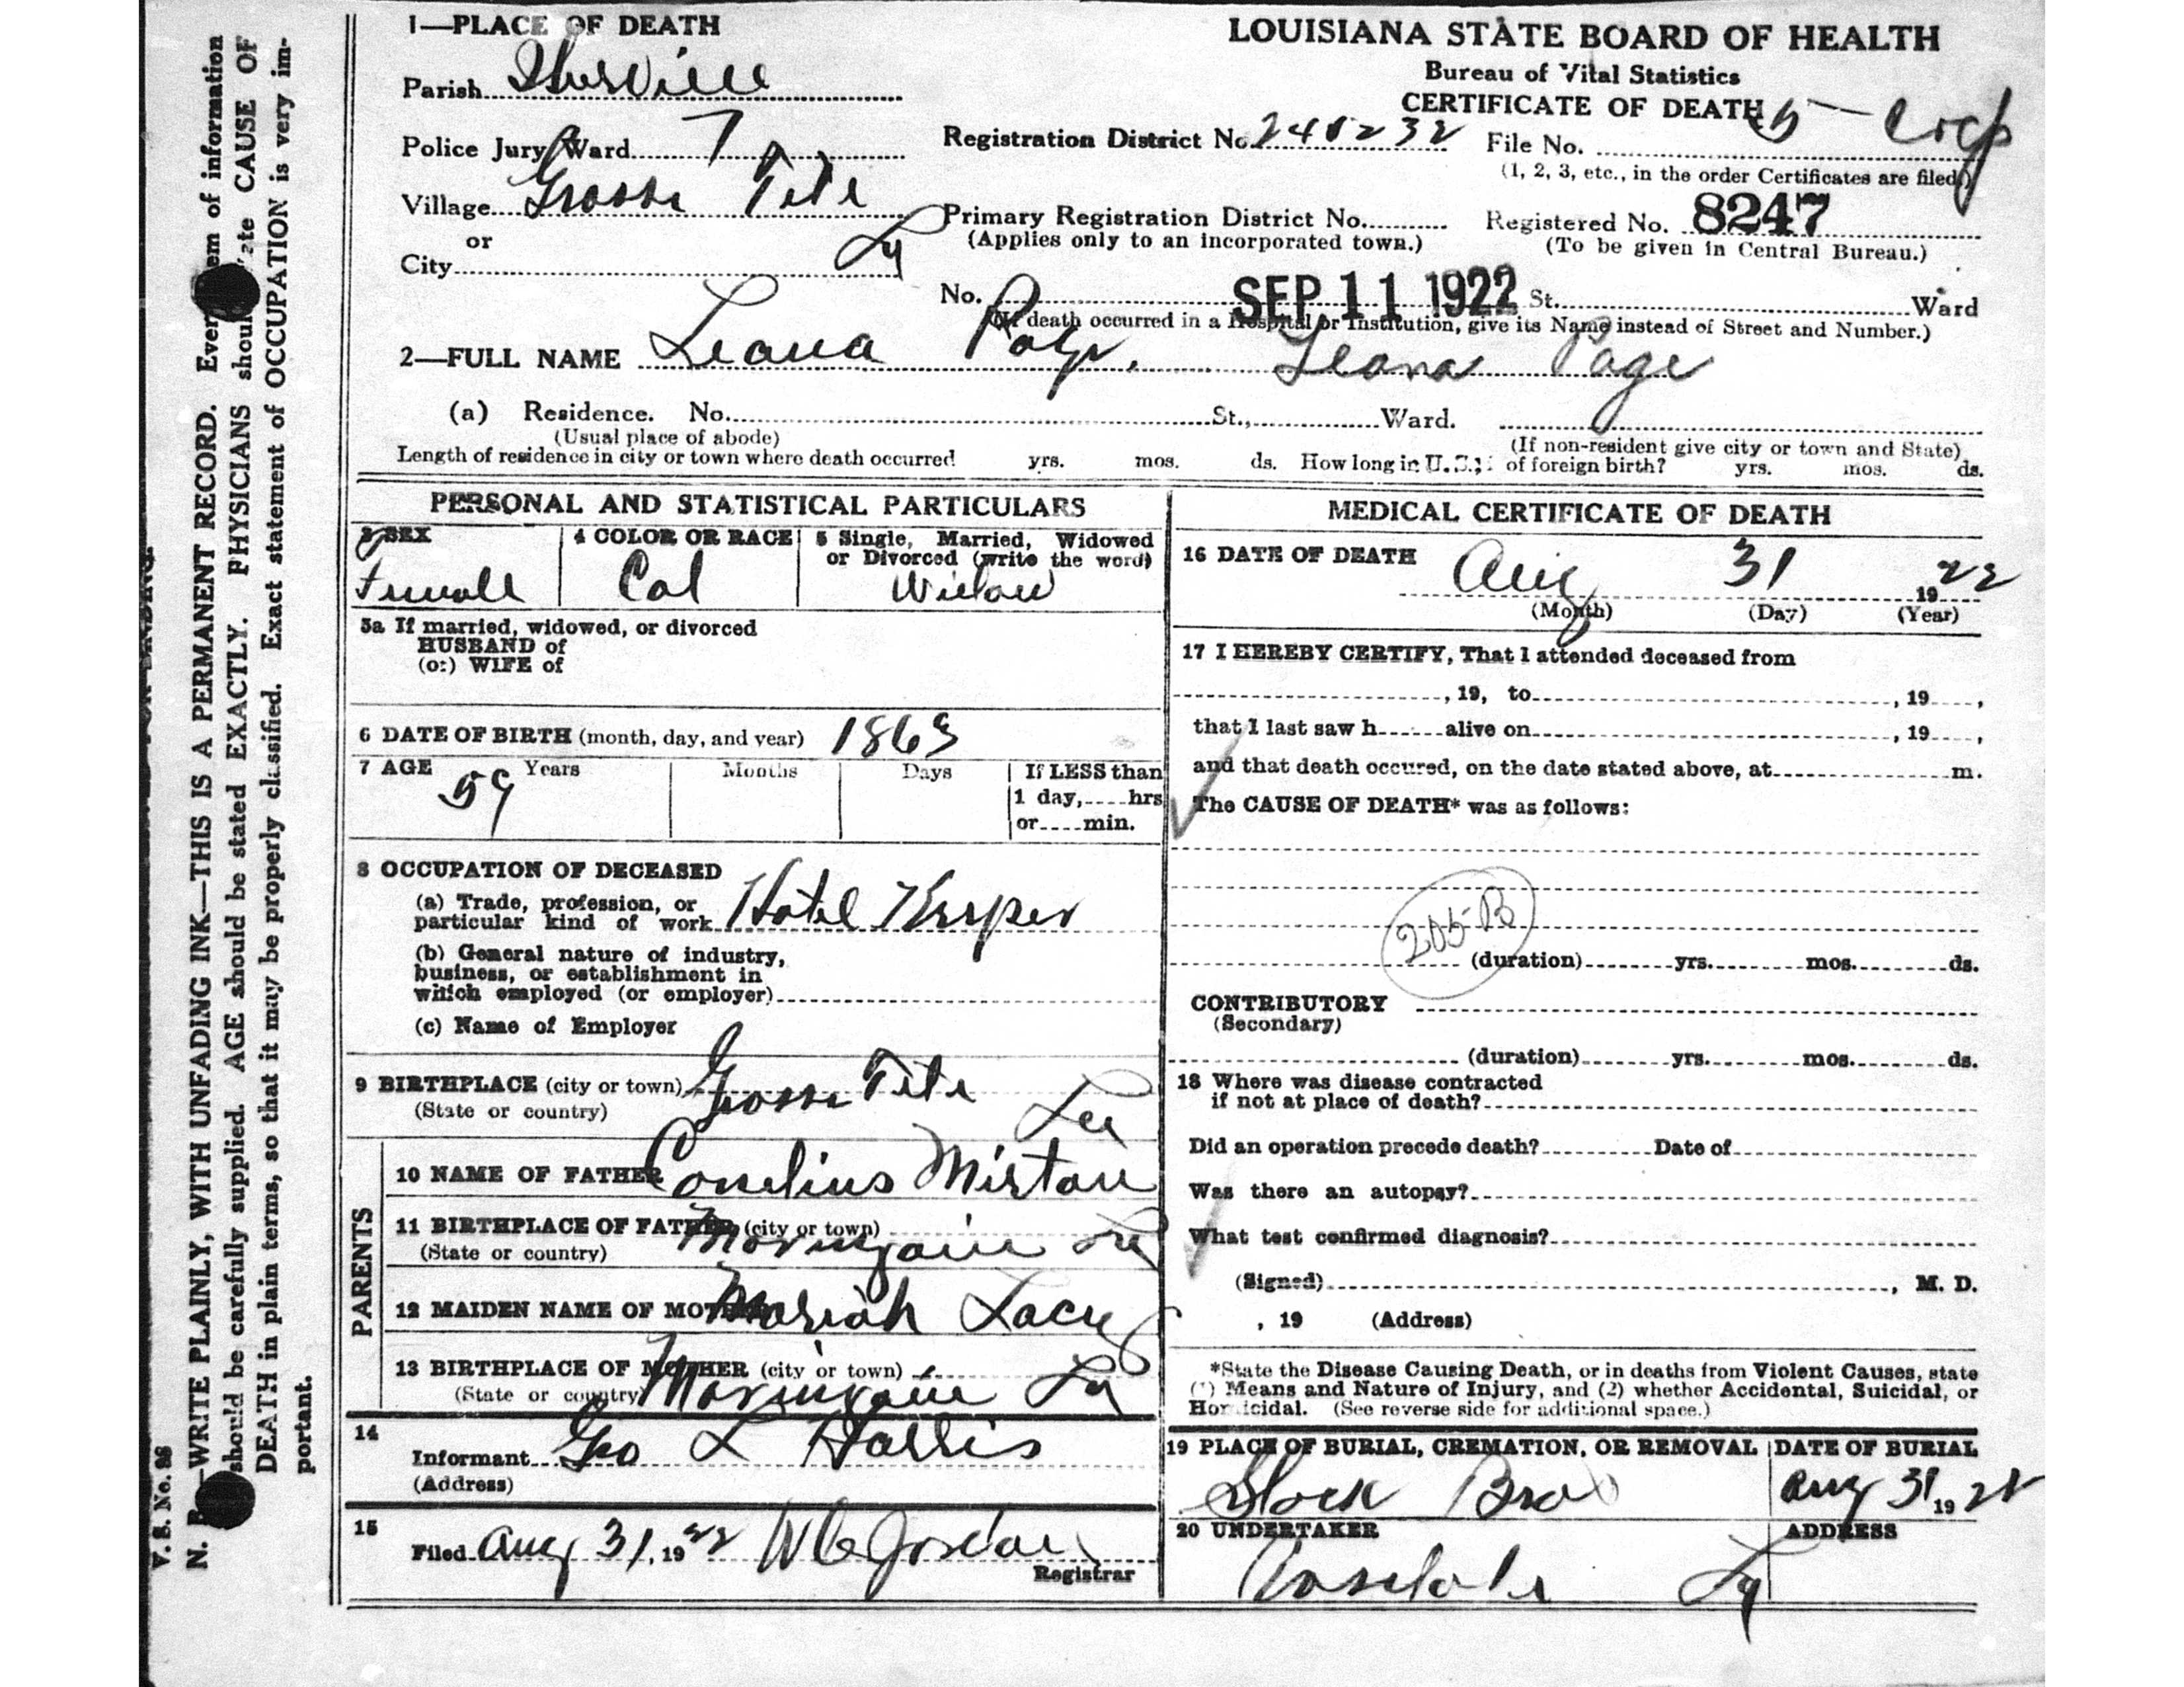 1—PLACE OF DEATH
Parish Iberville
Police Jury Ward 7
Village Grosse Tete
or
City La
LOUISIANA STATE BOARD OF HEALTH
Bureau of Vital Statistics
CERTIFICATE OF DEATH
Registration District No. 
File No.
(1, 2, 3, etc., in the order Certificates are filed.)
Primary Registration District No.
(Applies only to an incorporated town.)
Registered No. 8247
(To be given in Central Bureau.)
No. SEP 11 1922 St. Ward
(If death occurred in a Hospital or Institution, give its Name instead of Street and Number.)
2—FULL NAME Leana Page. Leana Page
(a) Residence. No. St., Ward.
(Usual place of abode)
(If non-resident give city or town and State)
Length of residence in city or town where death occurred yrs. mos. ds. How long in U.S., if of foreign birth? yrs. mos. ds.
PERSONAL AND STATISTICAL PARTICULARS
3 SEX
Female
4 COLOR OR RACE
Col
5 Single, Married, Widowed
or Divorced (write the word)
Widow
5a If married, widowed, or divorced
HUSBAND of
(or) WIFE of
6 DATE OF BIRTH (month, day, and year) 1863
7 AGE Years Months Days If LESS than
59
1 day, hrs
or min.
8 OCCUPATION OF DECEASED
(a) Trade, profession, or
particular kind of work Hotel Keeper
(b) General nature of industry,
business, or establishment in
which employed (or employer)
(c) Name of Employer
9 BIRTHPLACE (city or town) Grosse Tete
(State or country) La
PARENTS
10 NAME OF FATHER Conelius
11 BIRTHPLACE OF FATHER (city or town)
(State or country) Maringouin La
12 MAIDEN NAME OF MOTHER Mariah Lacy
13 BIRTHPLACE OF MOTHER (city or town)
(State or country) Maringouin La
14
Informant Geo L Hallis
(Address)
15
Filed Aug 31, 1922 W C Jordan
Registrar
MEDICAL CERTIFICATE OF DEATH
16 DATE OF DEATH Aug 31 1922
(Month) (Day) (Year)
17 I HEREBY CERTIFY, That I attended deceased from
, 19, to , 19 ,
that I last saw h alive on , 19 ,
and that death occured, on the date stated above, at m.
The CAUSE OF DEATH* was as follows:
205-B
(duration) yrs. mos. ds.
CONTRIBUTORY
(Secondary)
(duration) yrs. mos. ds.
18 Where was disease contracted
if not at place of death?
Did an operation precede death? Date of
Was there an autopsy?
What test confirmed diagnosis?
(Signed) , M. D.
, 19 (Address)
*State the Disease Causing Death, or in deaths from Violent Causes, state
(1) Means and Nature of Injury, and (2) whether Accidental, Suicidal, or
Homicidal. (See reverse side for additional space.)
19 PLACE OF BURIAL, CREMATION, OR REMOVAL
DATE OF BURIAL
Aug 31 1922
20 UNDERTAKER
ADDRESS
Rosedale La
V. S. No. 
N. B.—WRITE PLAINLY, WITH UNFADING INK—THIS IS A PERMANENT RECORD. Every item of information
should be carefully supplied. AGE should be stated EXACTLY. PHYSICIANS should state CAUSE OF
DEATH in plain terms, so that it may be properly classified. Exact statement of OCCUPATION is very im-
portant.